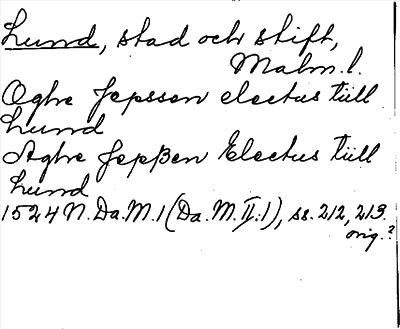 Lund, stad och stift,
Malm. l.
Oghe Jepssen electus tiill
Lund
Aghe Jepßen Electus tiill
Lund
1524 N. Da. M. 1 (Da. M. II. 1), ss. 212, 213.
orig.?